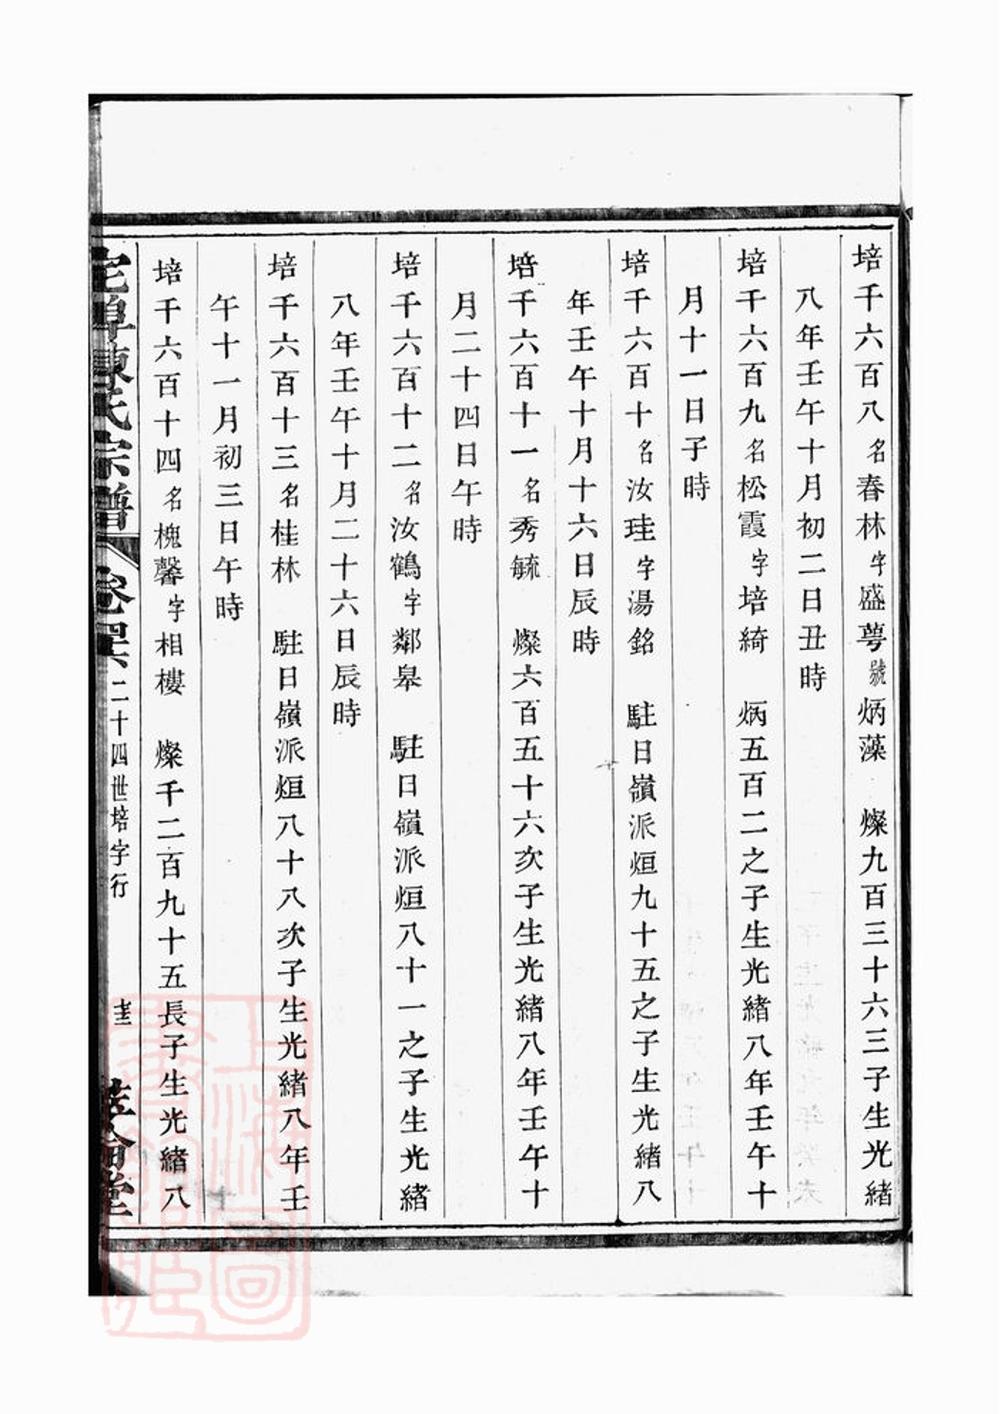 培千六百八名春林字盛萼號炳藻　燦九百三十六三子生光緒
八年壬午十月初二日丑時
培千六百九名松霞字培綺　炳五百二之子生光緒八年壬午十
月十一日子時
培千六百十名汝珪字湯銘　駐日嶺派烜九十五之子生光緒八
年壬午十月十六日辰時
培千六百十一名秀毓　燦六百五十六次子生光緒八年壬午十
月二十四日午時
培千六百十二名汝鶴字鄰皋　駐日嶺派烜八十一之子生光緒
八年壬午十月二十六日辰時
培千六百十三名桂林　駐日嶺派烜八十八次子生光緒八年壬
午十一月初三日午時
培千六百十四名槐馨字相樓　燦千二百九十五長子生光緒八
埠陳氏宗譜　卷　二十四世培字行　堂
上海圖書館藏